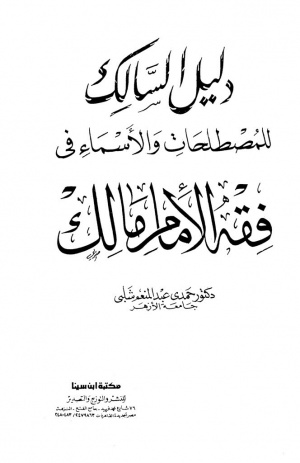 دليل السالك
للمصطلحات والأسماء في
فقه الإمام مالك
دكتور حمدي عبد المنعم شلبي
جامعة الأزهر
مكتبة ابن سينا
للنشر والتوزيع والتصدير